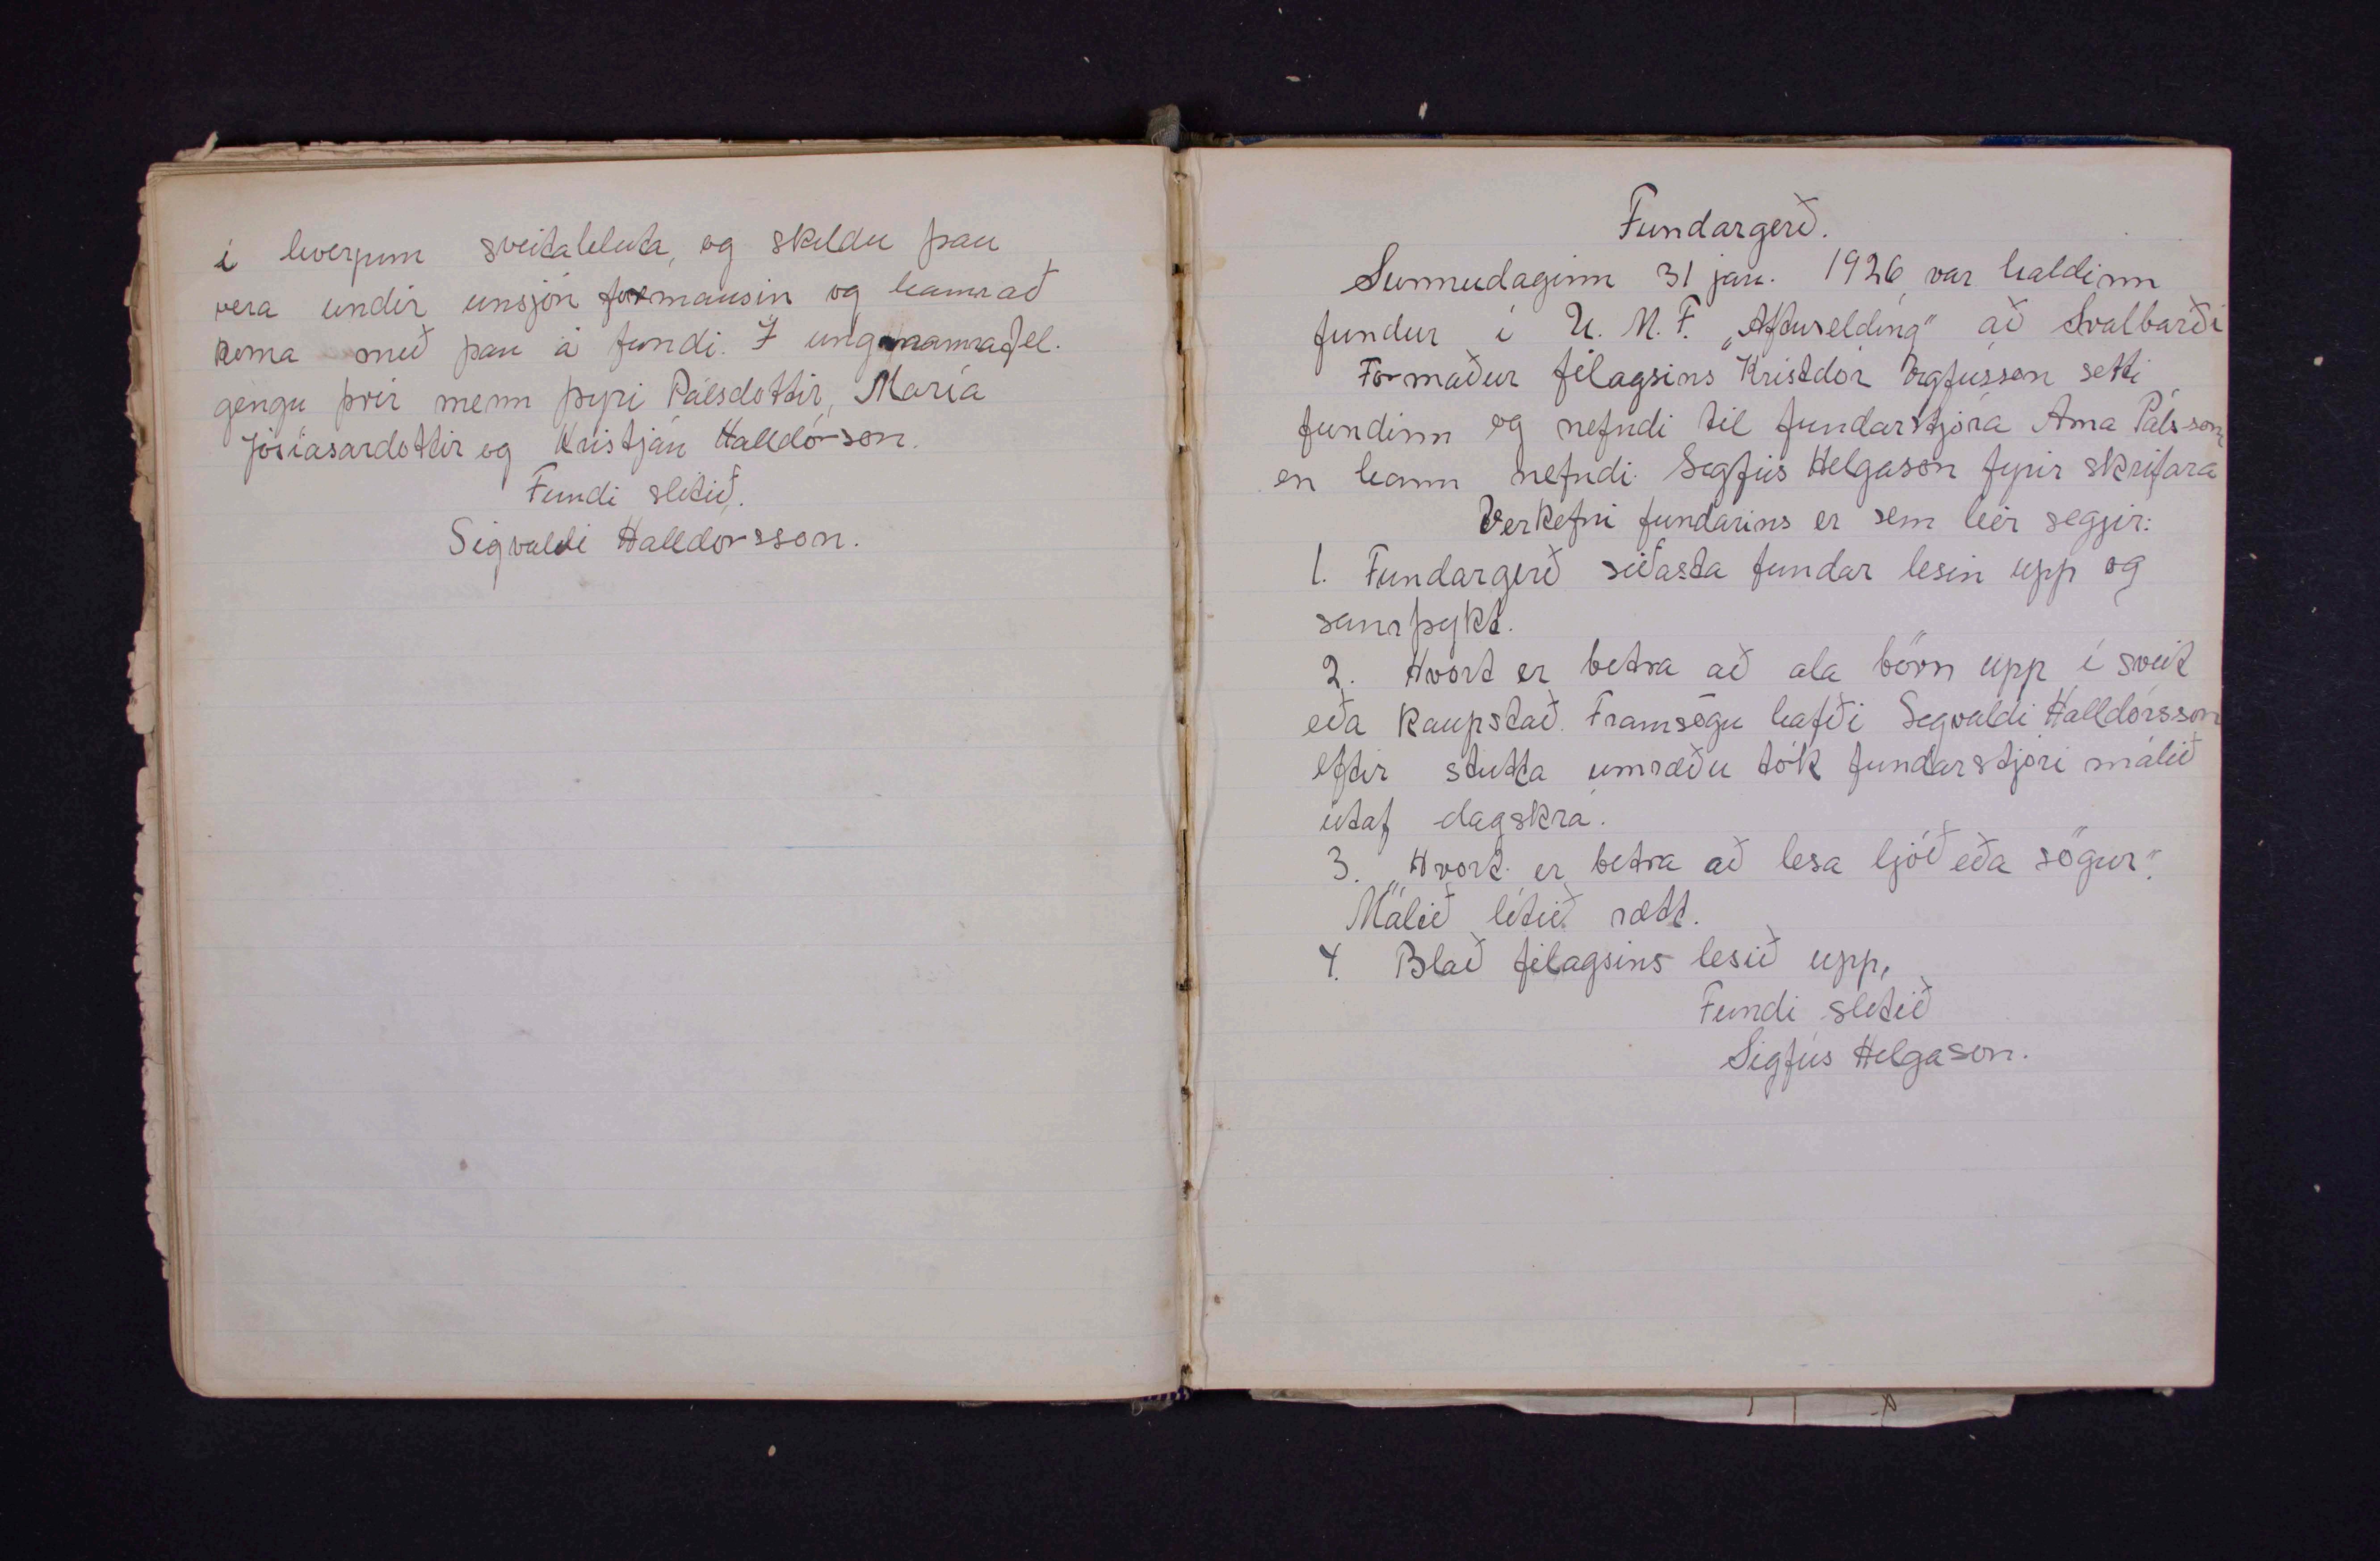 í hverjum sveitahluta, og skildu þau
vera undir umsjón formansin og hann að
koma með þau á fundi. Í ungmannafjel.
gengu þrír menn Þyri Pálsdottir, María
Jósíasardottir og Kristján Halldórson.
Fundi slitið.
Sigvaldi Halldórsson.
Fundargerð.
Sunnudaginn 31 jan. 1926 var haldinn
fundur í U. M. F. „Afturelding" að Svalbarði
Formaður félagsins Kristdór Vigfússon setti
fundinn og nefndi til fundarstjóra Árna Páls-son
en hann nefndi Sigfús Helgason fyrir skrifara
Verkefni fundarins er sem hér segjir:
1. Fundargerð síðasta fundar lesin upp og
samþykt.
2. Hvort er betra að ala börn upp í sveit
eða kaupstað. Framsögu hafði Sigvaldi Halldórsson
eftir stutta umræðu tók fundarstjóri málið
útaf dagskrá.
3. „Hvort er betra að lesa ljóð eða sögur".
Málið lítið rætt.
4. Blað félagsins lesið upp,
Fundi slitið
Sigfús Helgason.